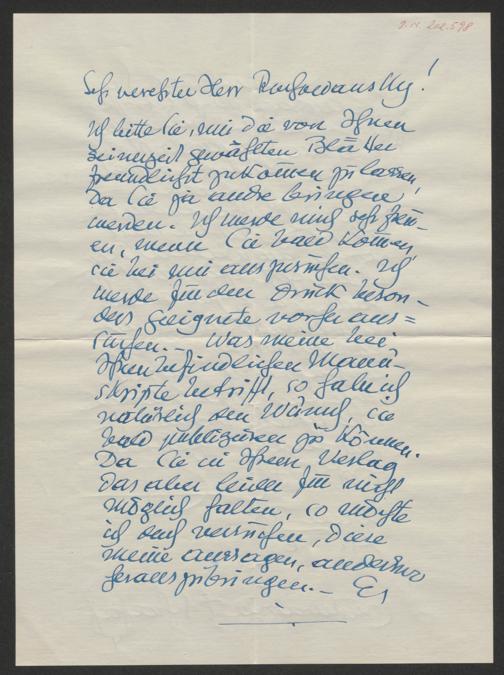 Sehr verehrter Herr
Ich bitte Sie, mir die von Ihnen
seinerzeit gewählten Blätter
freundlichst zukommen zu lassen,
da Sie ja andre bringen
werden. Ich werde mich sehr freu-
en, wenn Sie bald kommen,
sie bei mir auszusuchen. Ich
werde für den Druck beson-
ders geeignete vorher aus=
suchen. – Was meine bei
Ihnen befindlichen Manu-
skripte betrifft, so habe ich
natürlich den Wunsch, sie
bald publizieren zu können.
Da Sie in Ihrem Verlag
das aber leider für nicht
möglich halten, so möchte
ich doch versuchen, diese
meine aussagen, anderswo
herauszubringen. – Es